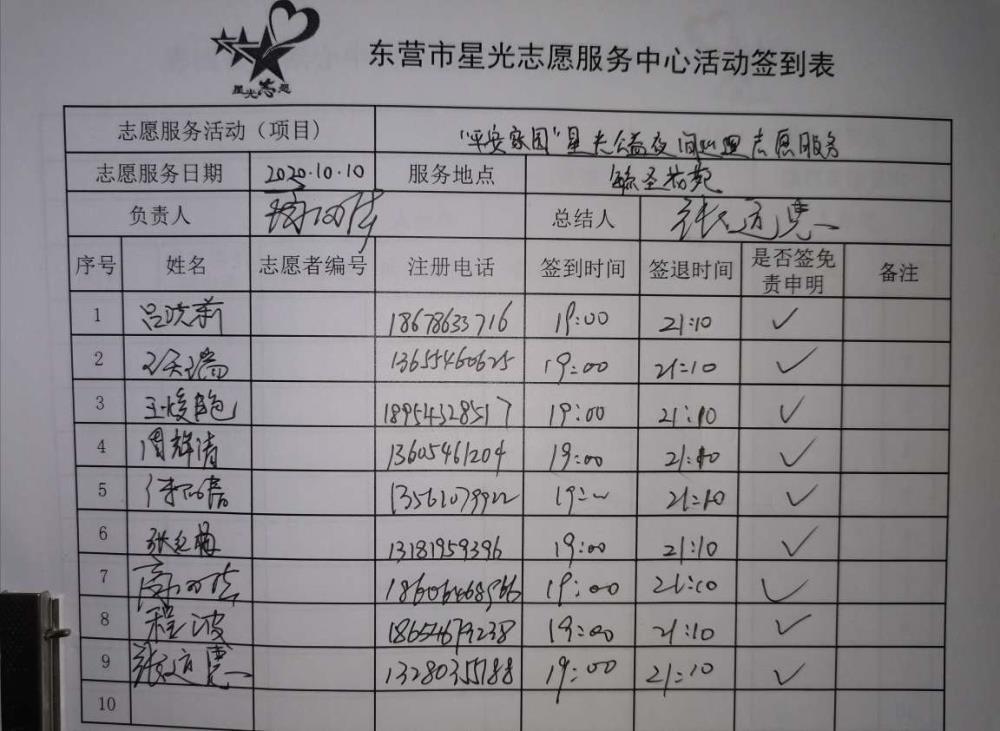 星光志愿
东营市星光志愿服务中心活动签到表
志愿服务活动（项目） "平安家园"星光公益夜间巡逻志愿服务
志愿服务日期 2020.10.10 服务地点
负责人 总结人 张道惠
序号 姓名 志愿者编号 注册电话 签到时间 签退时间 是否签免责申明 备注
1 吕晓新 18678633716 19:00 21:10 ✓
2 13655460625 19:00 21:10 ✓
3 18954328517 19:00 21:10 ✓
4 周辉清 13605461204 19:00 21:10 ✓
5 13561079922 19: 21:10 ✓
6 13181959396 19:00 21:10 ✓
7 18606468566 19:00 21:10 ✓
8 程波 18654679238 19:00 21:10 ✓
9 张道惠 13280355188 19:00 21:10 ✓
10